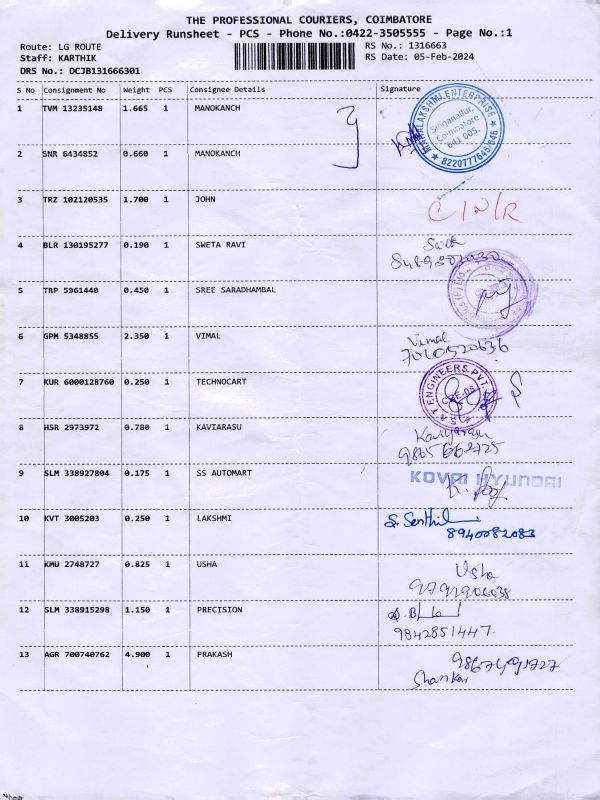 THE PROFESSIONAL COURIERS, COIMBATORE
Delivery Runsheet - PCS - Phone No.:0422-3505555 - Page No.:1
Route: LG ROUTE RS No.: 1316663
Staff: KARTHIK RS Date: 05-Feb-2024
DRS No.: DCJB131666301
S No Consignment No Weight PCS Consignee Details Signature
1 TVM 13235148 1.665 1 MANOKANCH
MAHALAKSHMI ENTERPRISE
Singanallur,
Coimbatore
641 005.
★ 8220777645/646 ★
2 SNR 6434852 0.660 1 MANOKANCH
3 TRZ 102120535 1.700 1 JOHN
C/N/R
4 BLR 130195277 0.190 1 SWETA RAVI
5 TRP 5961440 0.450 1 SREE SARADHAMBAL
6 GPM 5348855 2.350 1 VIMAL
Vimal
7010520636
7 KUR 6000128760 0.250 1 TECHNOCART
ENGINEERS PVT.
CBE-05
8 HSR 2973972 0.780 1 KAVIARASU
Kaviyarasu
9865662725
9 SLM 338927804 0.175 1 SS AUTOMART
KOVAI HYUNDAI
10 KVT 3005203 0.250 1 LAKSHMI
S. Senthil
8940082083
11 KMU 2748727 0.825 1 USHA
Usha
12 SLM 338915298 1.150 1 PRECISION
9842851447.
13 AGR 700740762 4.900 1 PRAKASH
Shankar